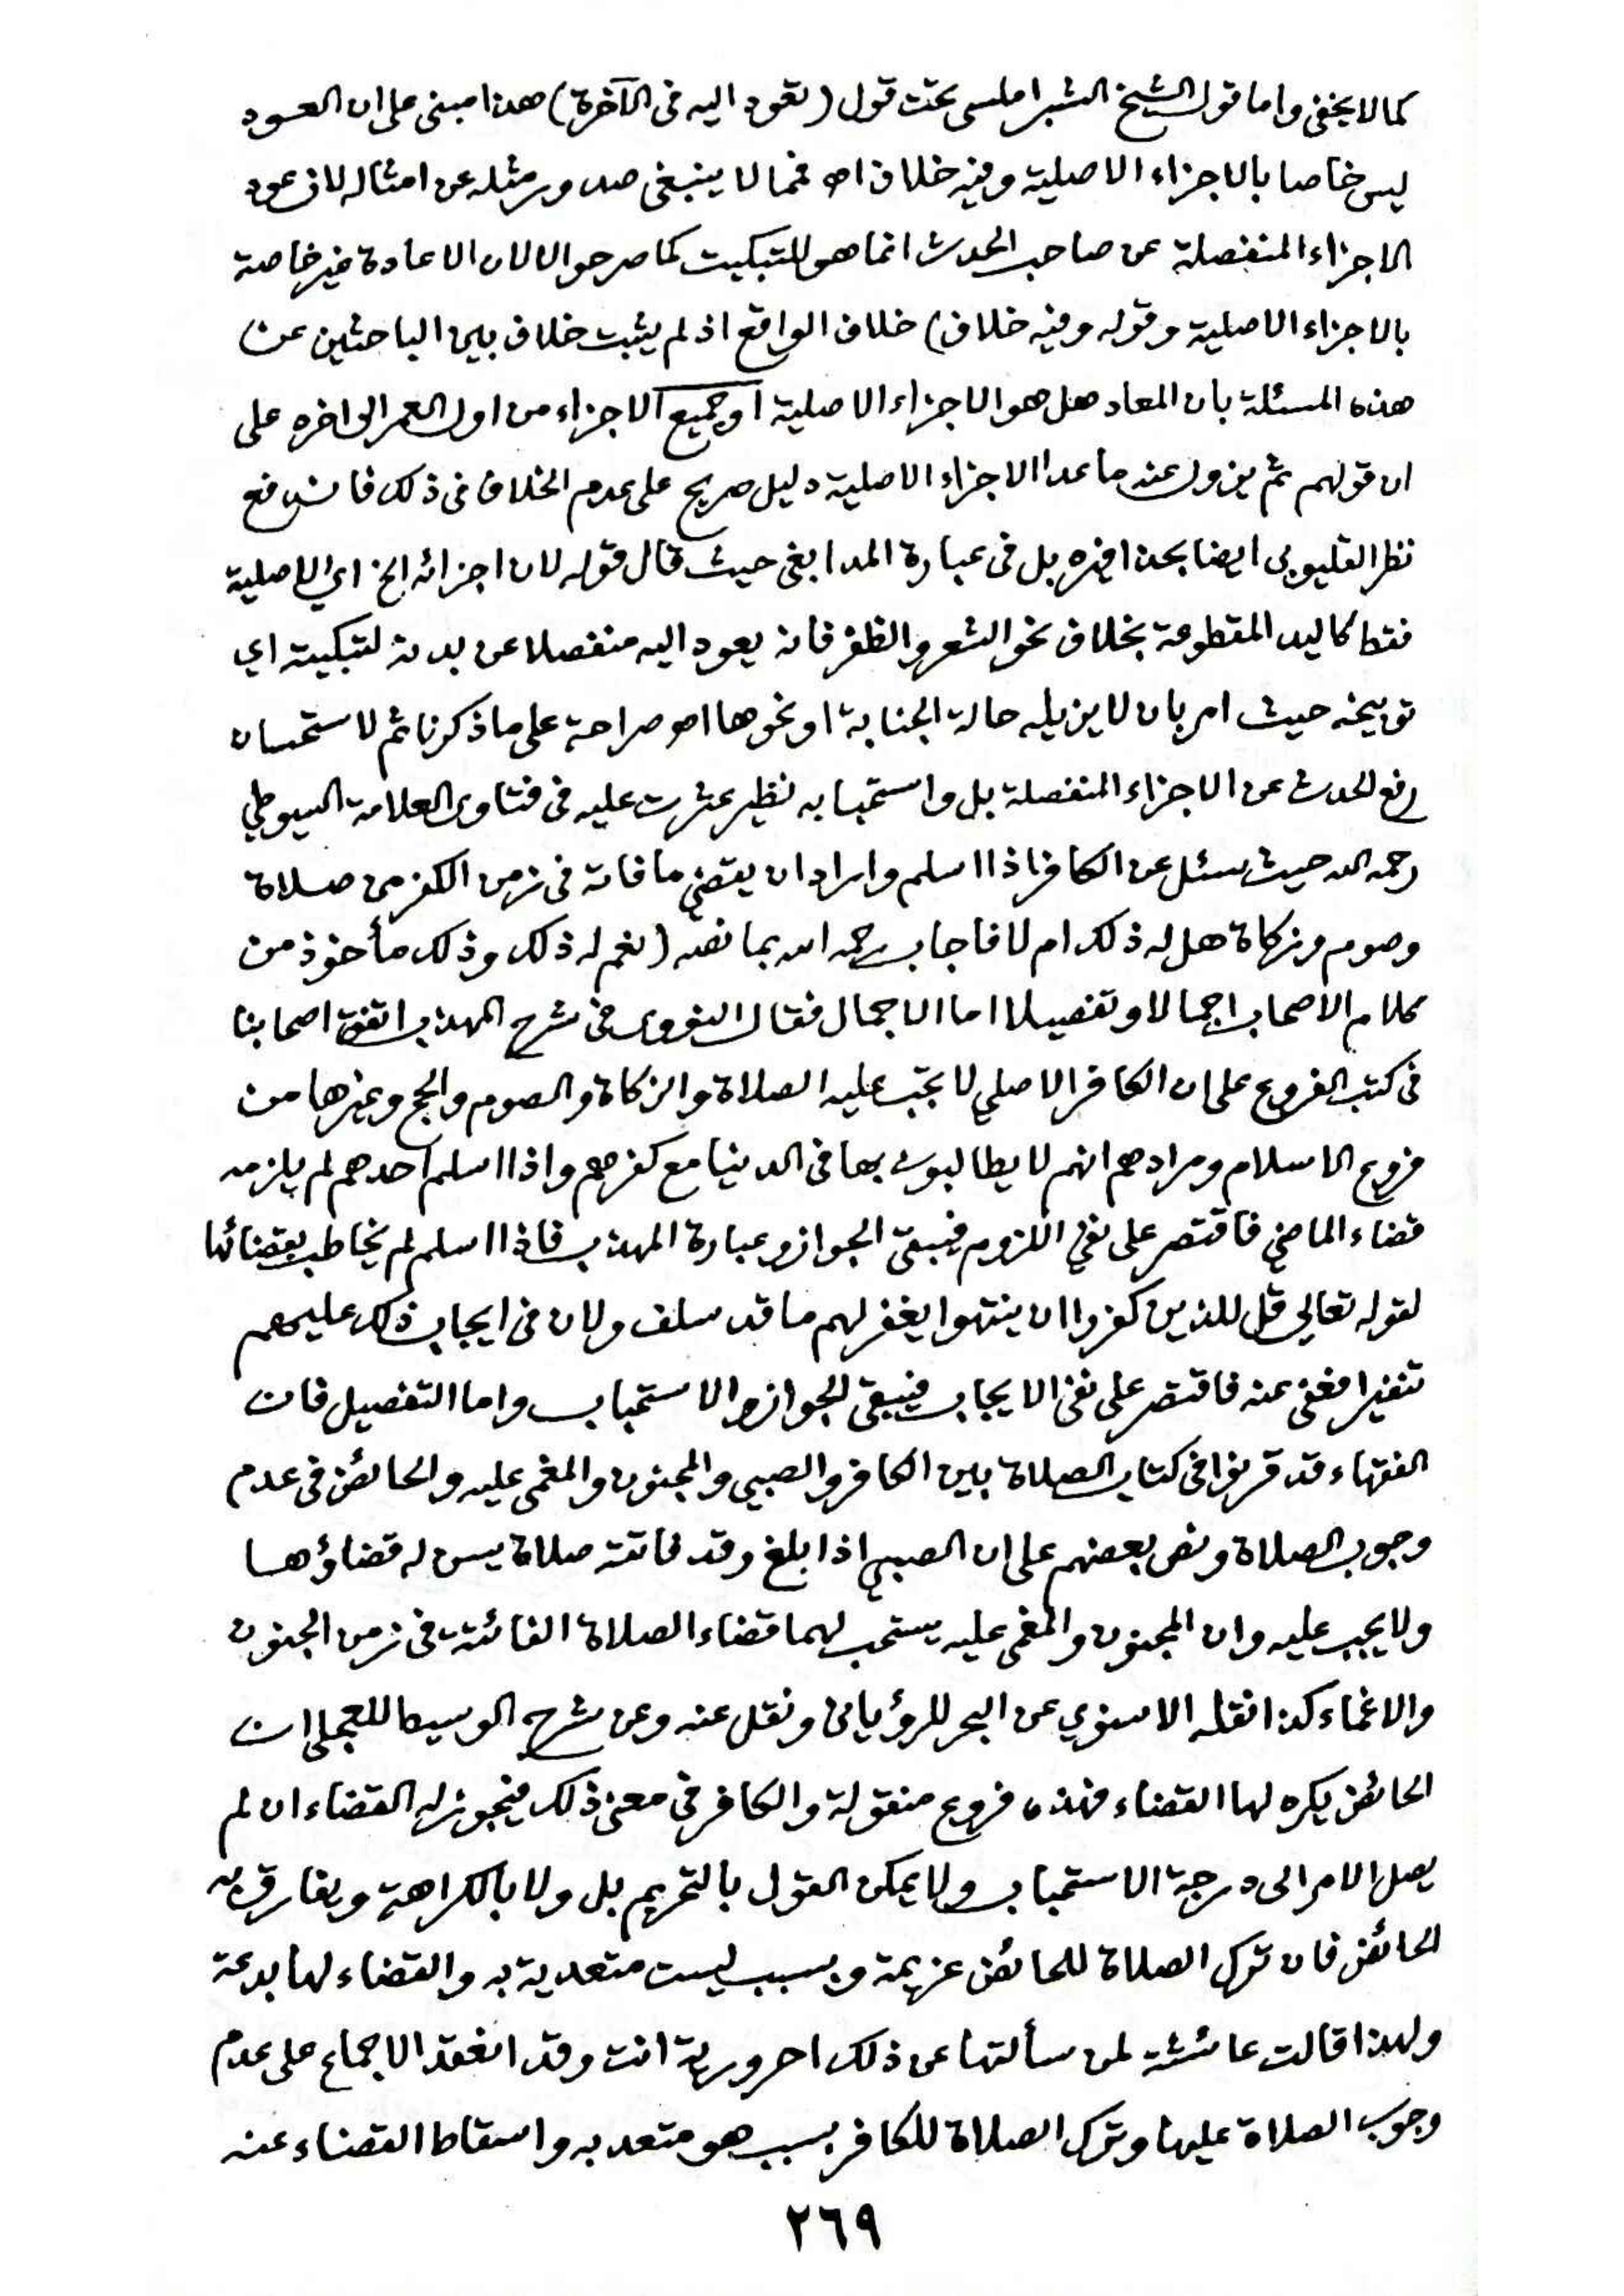 كما لا يخفى واما قول الشيخ الشبراملسى تحت قول (تعود اليه فى الآخرة) هذا مبنى على ان العود
ليس خاصا بالاجزاء الاصلية وفيه خلاف اه فمما لا ينبغى صدور مثله عن امثاله لان عود
الاجزاء المنفصلة عن صاحب الحدث انما هو للتبكيت كما صرحوا لا لان الاعادة غير خاصة
بالاجزاء الاصلية وقوله وفيه خلاف) خلاف الواقع اذ لم يثبت خلاف بين الباحثين عن
هذه المسئلة بان المعاد هل هو الاجزاء الاصلية او جميع الاجزاء من اول العمر الى اخره على
ان قولهم ثم يزول عنه ما عدا الاجزاء الاصلية دليل صريح على عدم الخلاف فى ذلك فاندفع
نظر القليوبى ايضا بحذافيره بل فى عبارة المدابغى حيث قال قوله لان اجزائه الخ اي الاصلية
فقط كاليد المقطوعة بخلاف نحو الشعر والظفر فانه يعود اليه منفصلا عن بدنه لتبكيته اي
توبيخه حيث امر بان لا يزيله حالة الجنابة او نحوها اه صراحة على ما ذكرنا ثم لاستحسان
رفع الحدث عن الاجزاء المنفصلة بل واستحبابه نظير عثرت عليه فى فتاوى العلامة السيوطي
رحمه الله حيث سئل عن الكافر اذا اسلم واراد ان يقضي ما فاته فى زمن الكفر من صلاة
وصوم وزكاة هل له ذلك ام لا فاجاب رحمه الله بما نصه (نعم له ذلك وذلك مأخوذ من
كلام الاصحاب اجمالا وتفصيلا اما الاجمال فقال النووى فى شرح المهذب اتفق اصحابنا
فى كتب الفروع على ان الكافر الاصلي لا تجب عليه الصلاة والزكاة والصوم والحج وغيرها من
فروع الاسلام ومرادهم انهم لا يطالبون بها فى الدنيا مع كفرهم واذا اسلم احدهم لم يلزمه
قضاء الماضي فاقتصر على نفي اللزوم فيبقى الجواز وعبارة المهذب فاذا اسلم لم يخاطب بقضائها
لقوله تعالى قل للذين كفروا ان ينتهوا يغفر لهم ما قد سلف ولان فى ايجاب ذلك عليهم
تنفيرا فعفى عنه فاقتصر على نفى الايجاب فيبقى الجواز والاستحباب واما التفصيل فان
الفقهاء قد قرنوا فى كتاب الصلاة بين الكافر والصبي والمجنون والمغمى عليه والحائض فى عدم
وجوب الصلاة ونص بعضهم على ان الصبي اذا بلغ وقد فاتته صلاة يسن له قضاؤها
ولا يجب عليه وان المجنون والمغمى عليه يستحب لهما قضاء الصلاة الفائتة فى زمن الجنون
والاغماء كذا نقله الاسنوي عن البحر للرؤيانى ونقل عنه وعن شرح الوسيط للعجلى ان
الحائض يكره لها القضاء فهذه فروع منقولة والكافر فى معنى ذلك فيجوز له القضاء ان لم
يصل الامر الى درجة الاستحباب ولا يمكن القول بالتحريم بل ولا بالكراهة ويفارق
الحائض فان ترك الصلاة للحائض عزيمة وبسبب ليست متعدية به والقضاء لها بدعة
ولهذا قالت عائشة لمن سألتها عن ذلك احرورية انت وقد انعقد الاجماع على عدم
وجوب الصلاة عليها وترك الصلاة للكافر بسبب هو متعد به واسقاط القضاء عنه
٢٦٩